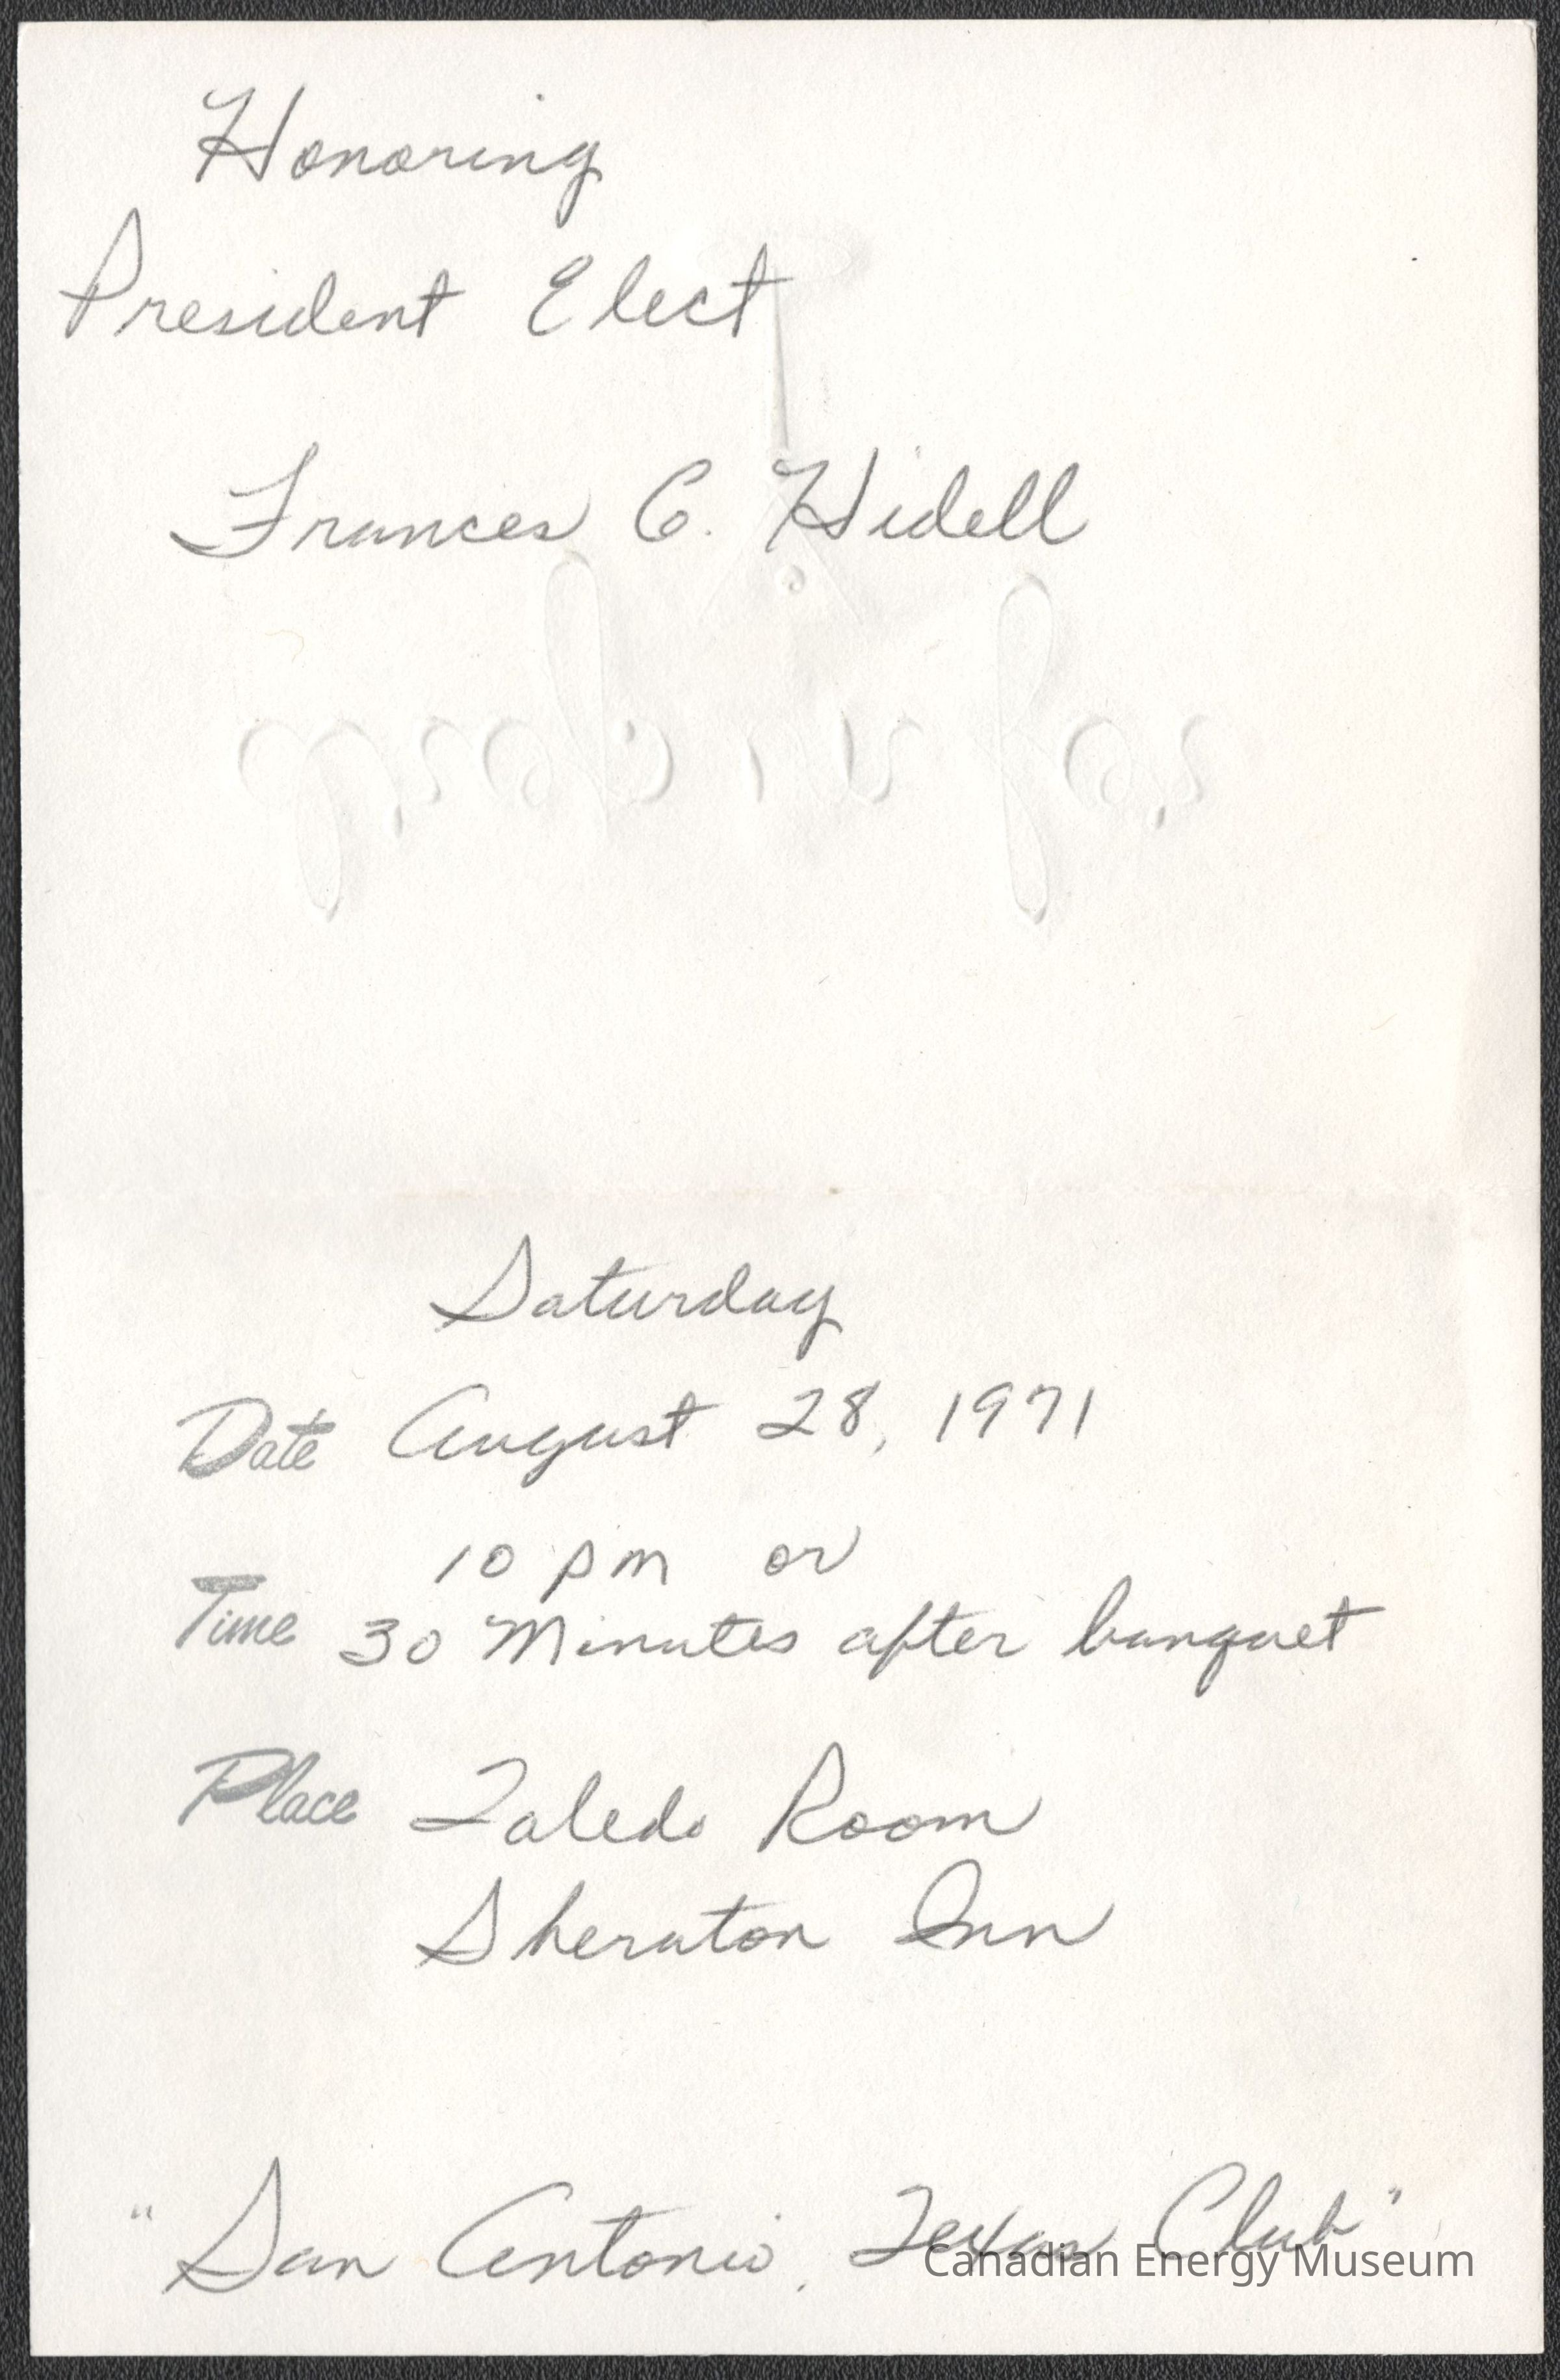 Honoring
President Elect
Frances C. Hidell
Saturday
Date August 28, 1971
10 pm or
Time 30 Minutes after banquet
Place Toledo Room
Sheraton Inn
"San Antonio, Texas Club"
Canadian Energy Museum